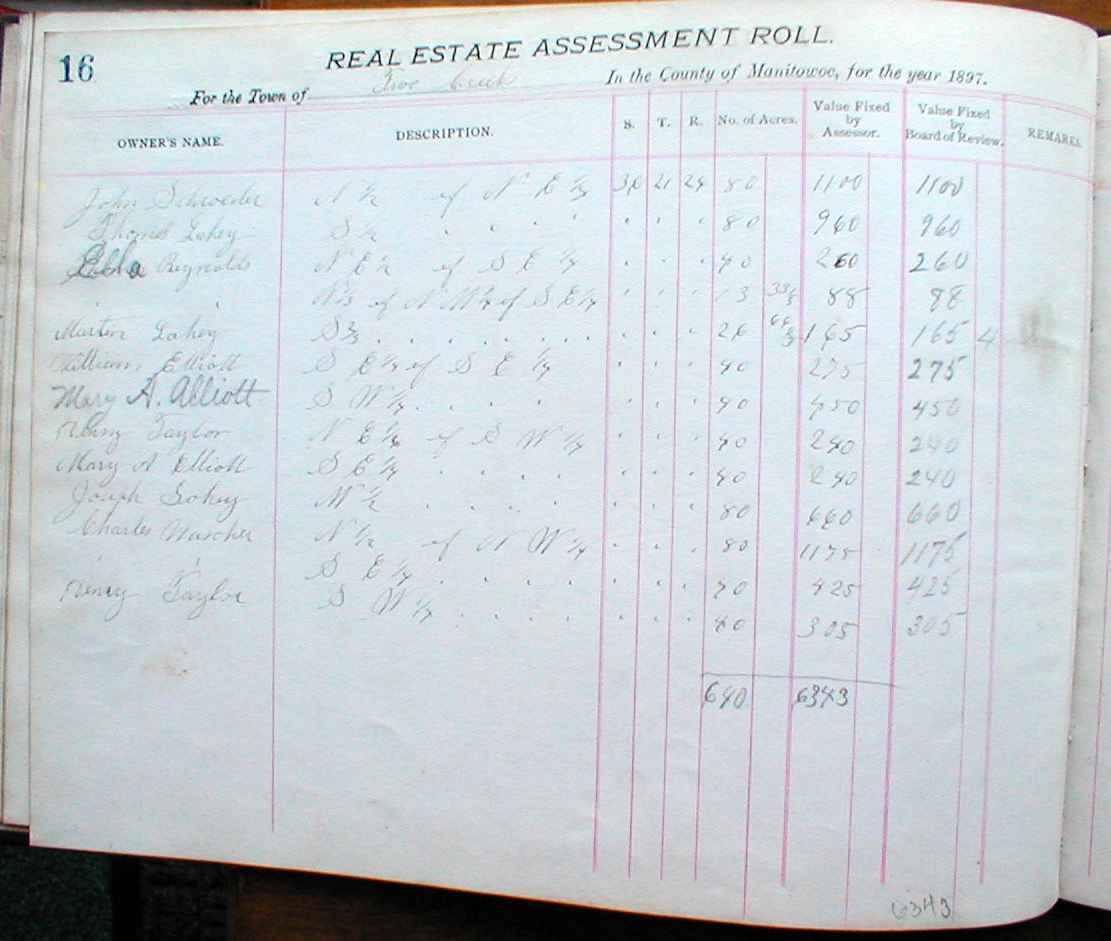 16
REAL ESTATE ASSESSMENT ROLL.
For the Town of Two Creek In the County of Manitowoc, for the year 1897.
OWNER'S NAME. DESCRIPTION. S. T. R. No. of Acres. Value Fixed by Assessor. Value Fixed by Board of Review. REMARKS.
John Schroeder N ½ of N E ¼ 36 21 24 80 1100 1100
Thomas Gokey S ½ . . . . . . . 80 960 960
Reynolds N E ¼ of S E ¼ . . . 40 260 260
" " N ⅓ of N W ¼ of S E ¼ . . . 13 33⅓ 88 88
Martin Gokey S ⅔ . . . . . . . . . . 26 66⅔ 165 165 4
William Elliott S E ¼ of S E ¼ . . . 40 275 275
Mary A. Alliott S W ¼ . . . . . . . 40 450 450
Henry Taylor N E ¼ of S W ¼ . . . 40 240 240
Mary A Elliott S E ¼ . . . . . . . 40 240 240
Joseph Gokey W ½ . . . . . . . 80 660 660
Charles Wascher N ½ of N W ¼ . . . 80 1175 1175
" " S E ¼ . . . . . . . 40 425 425
Henry Taylor S W ¼ . . . . . . . 40 305 305
640 6343
6343